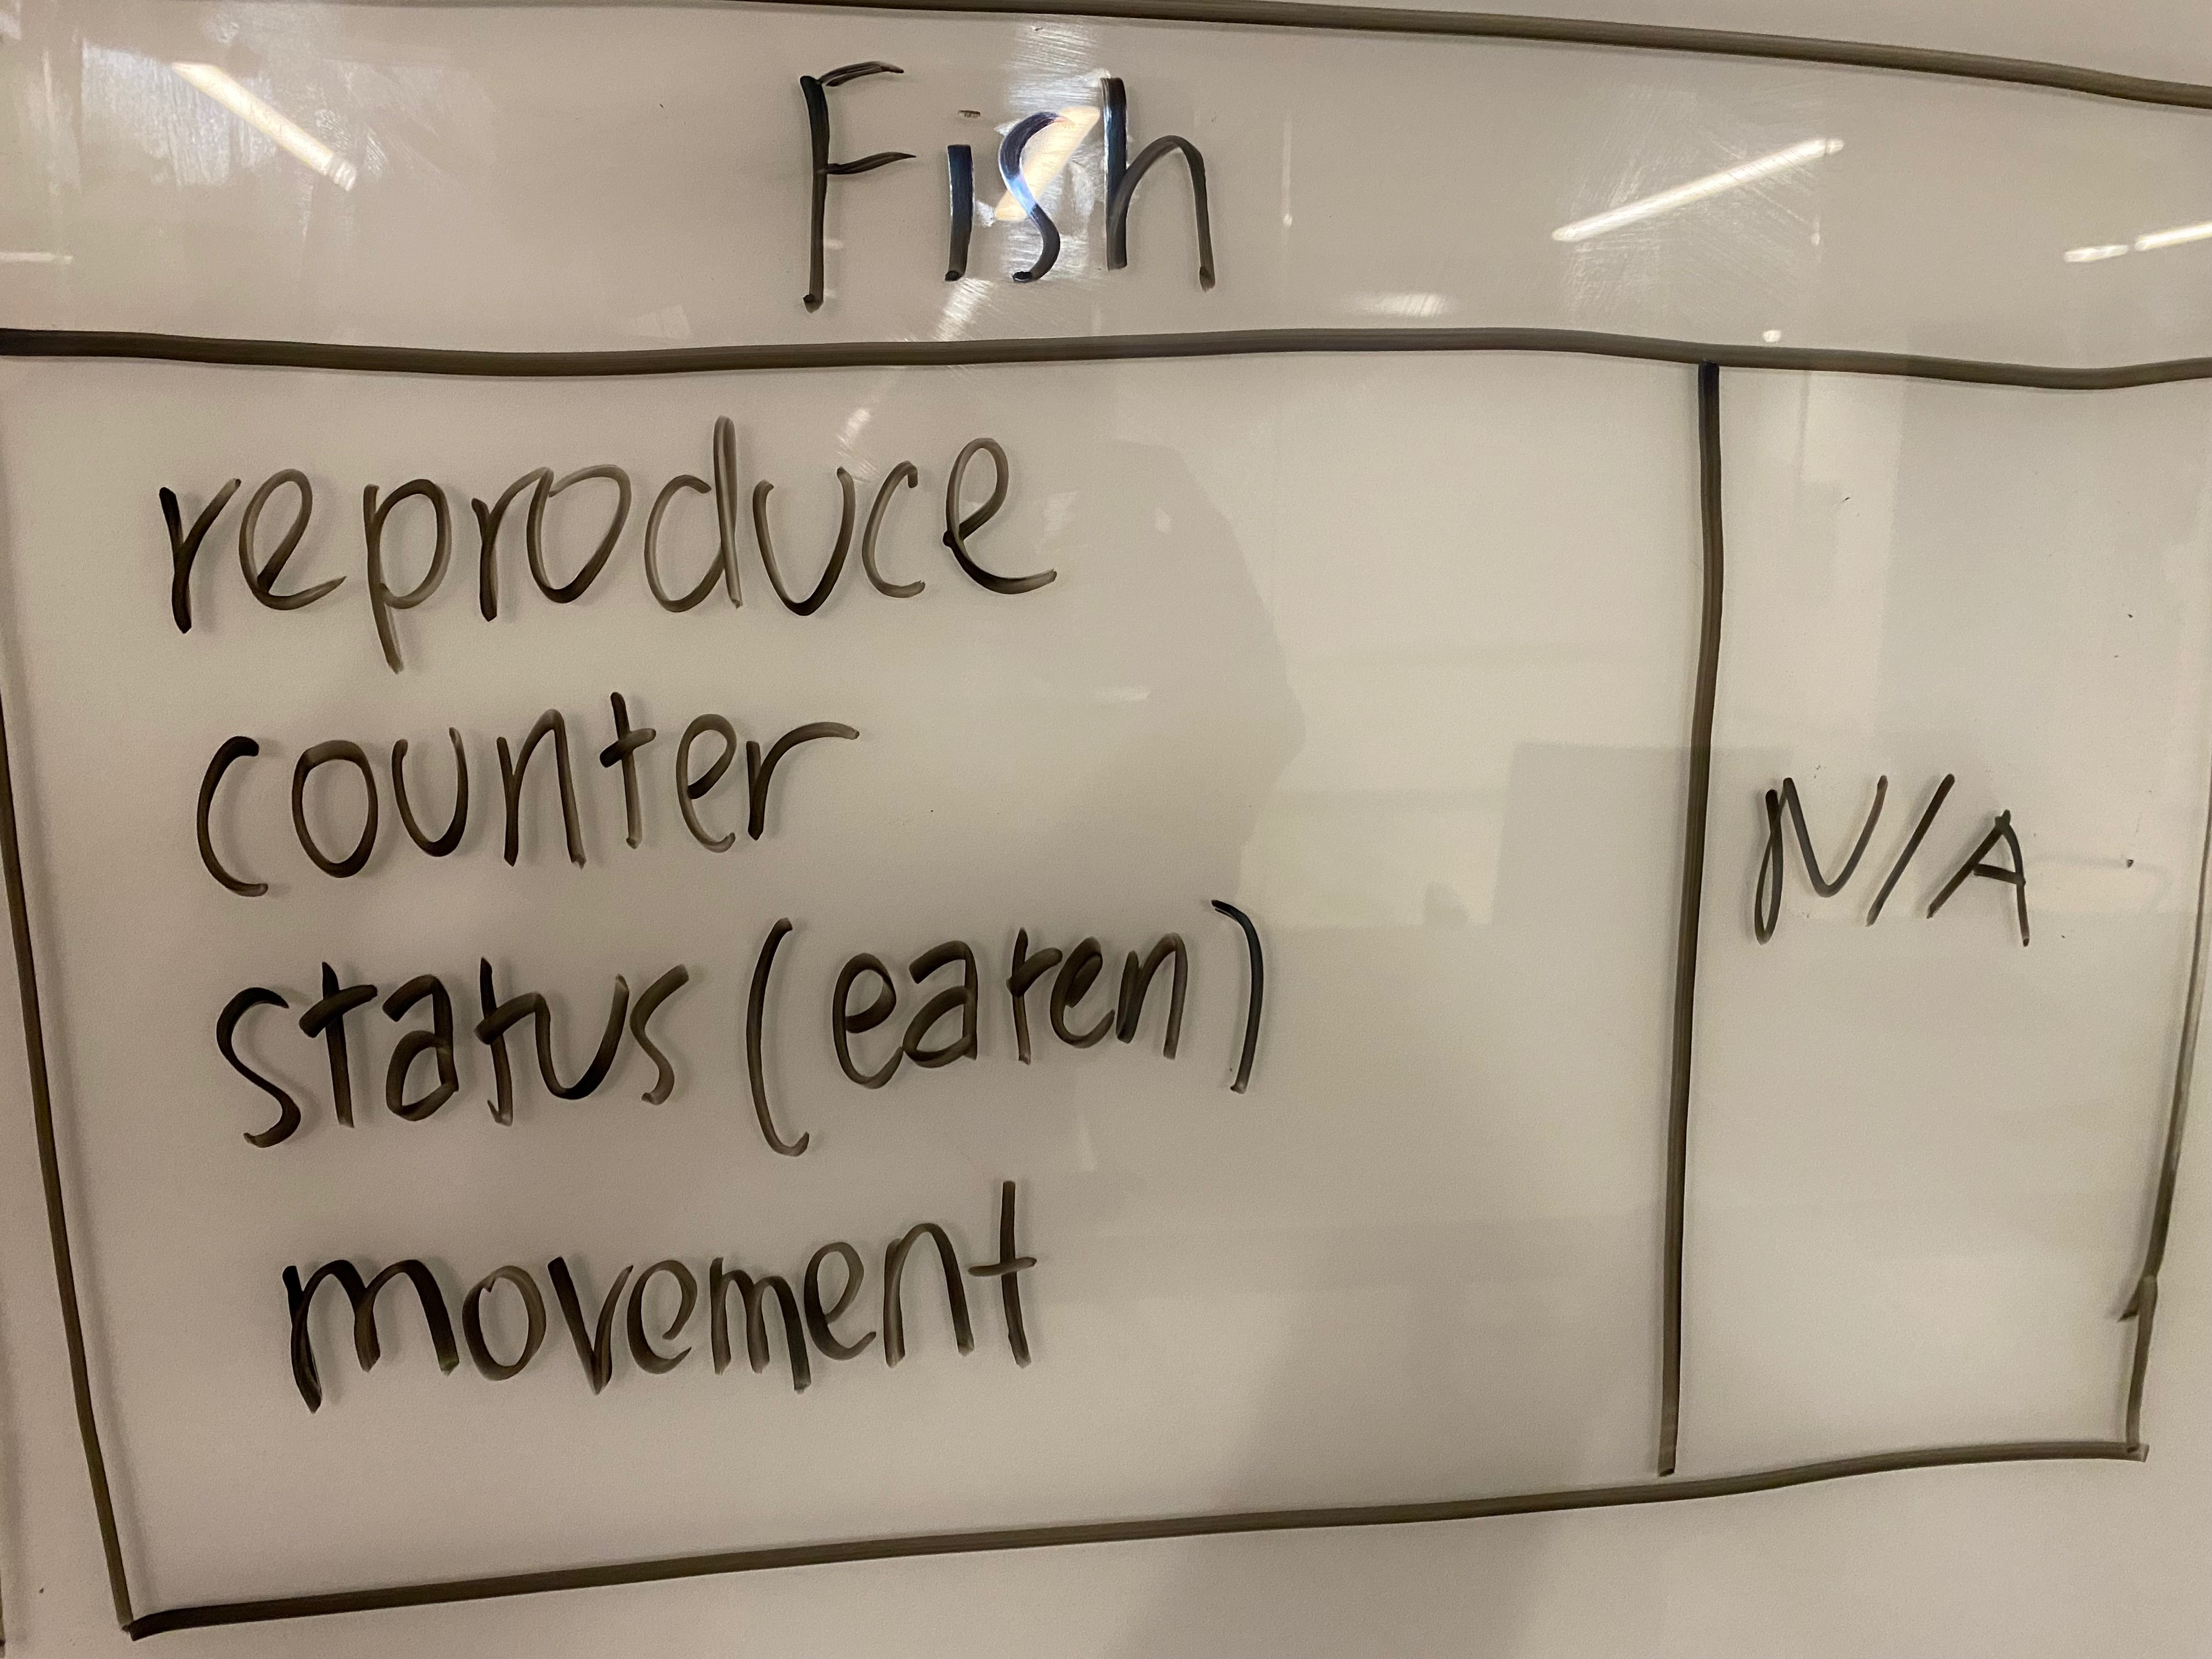 Fish
reproduce
counter
status (eaten)
movement
N/A